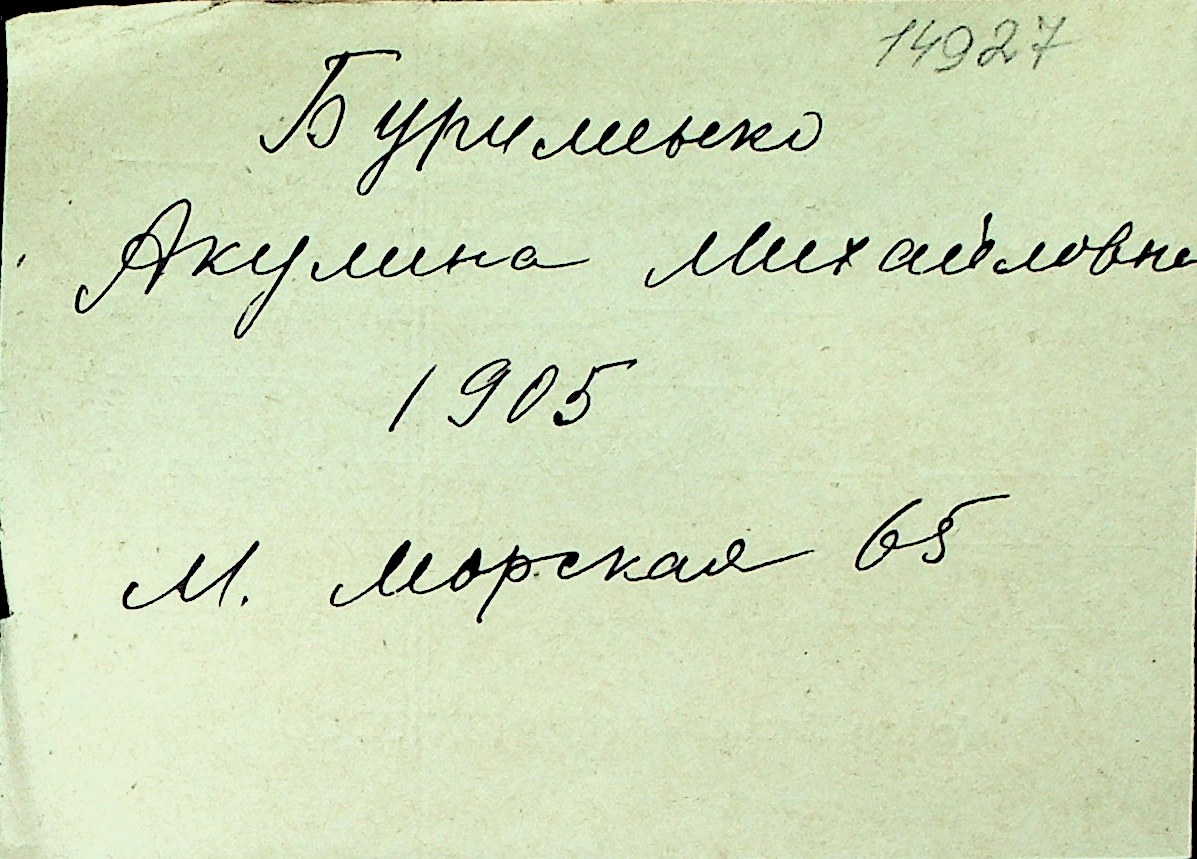 14927
Буименко
Акулина Михайловна
1905
М. Морская 65